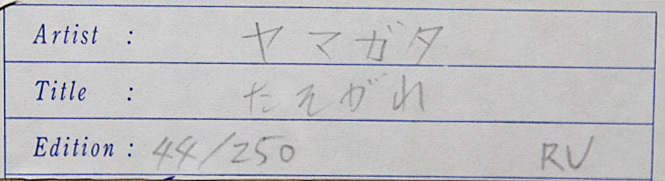 Artist : ヤマガタ
Title : たそがれ
Edition : 44/250 RV